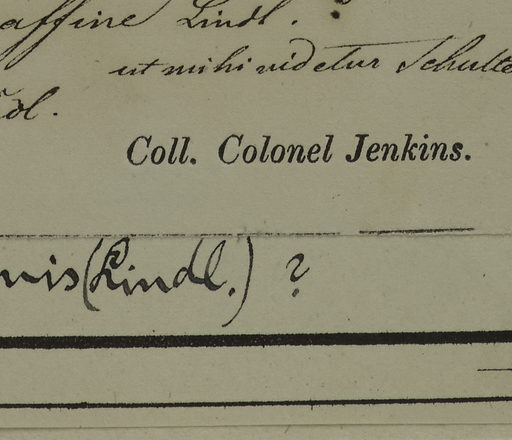 affine Lindl.
ut mihi videtur Schulte
dl.
Coll. Colonel Jenkins.
nis (Lindl.) ?